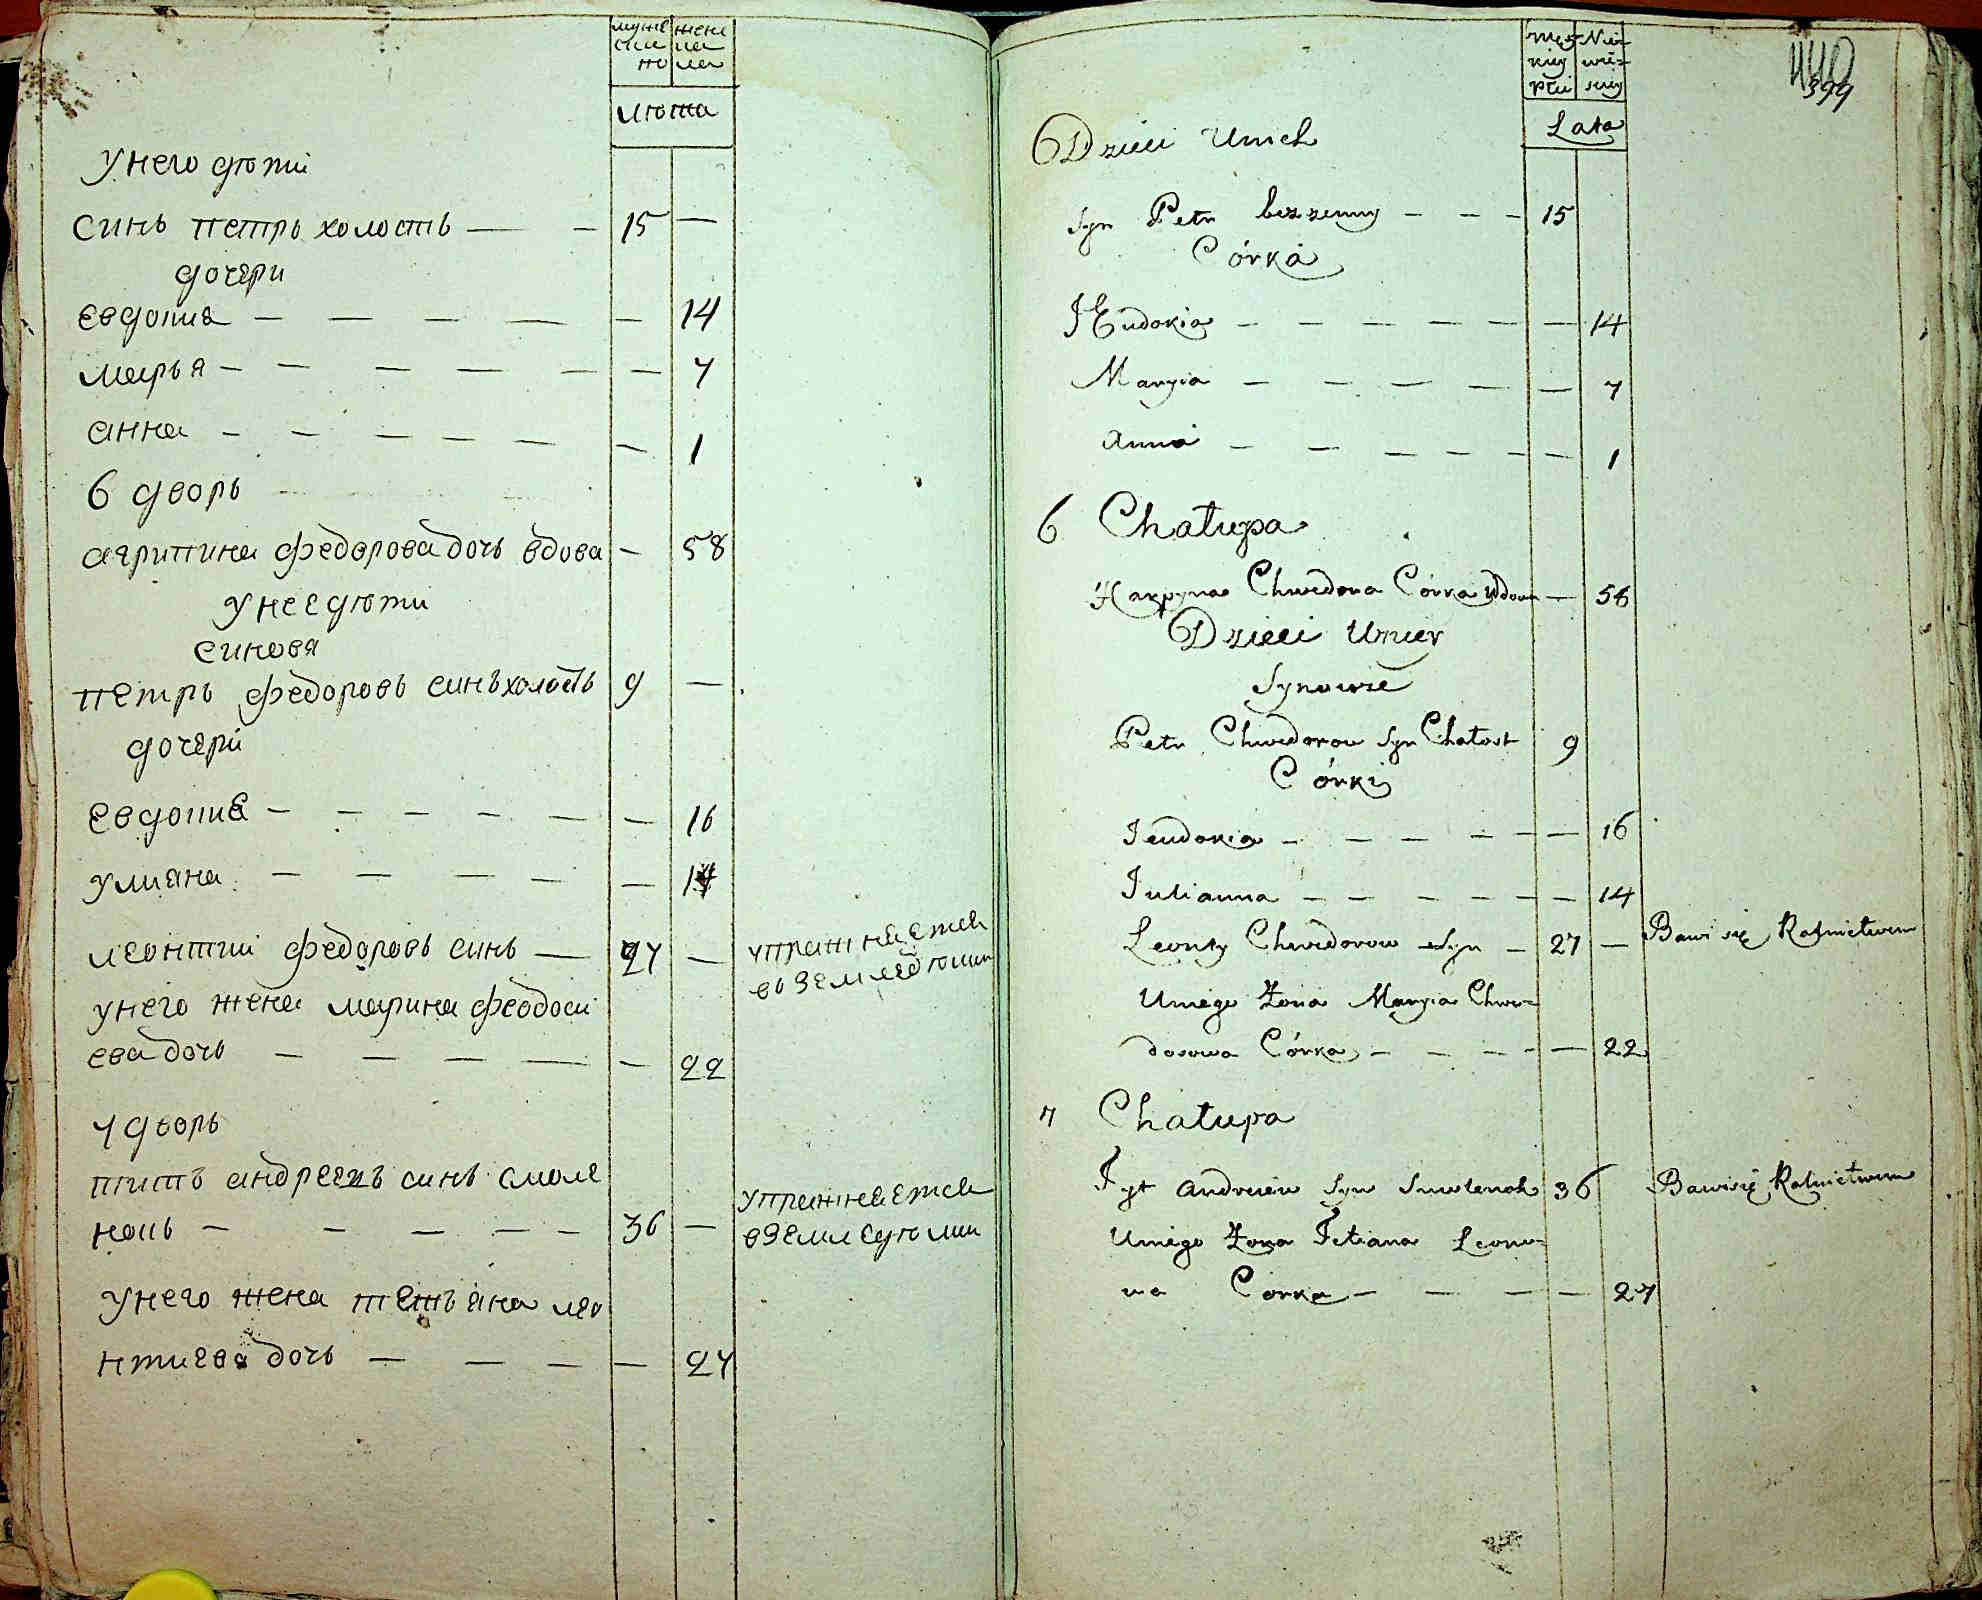 муже
ска
но
жена
ка
ла
люта
У него дюти
синь петрь холость — — 15 —
дочери
евдокиа — — — — — 14
марья — — — — — — 7
анна — — — — — — 1
6 дворь
агрипина федорова дочь вдова — 58
У нее дюти
синовя
петрь федоровь синь холость 9 —
дочери
евдокиа — — — — — — 16
улиана — — — — — 14
леонтии федоровь синь — 27 — упражнаетса
во земледюлии
у него жена марина феодоси
ева дочь — — — — — 22
7 дворь
титъ андреевъ синъ смоле
нець — — — — — 36 — упражнаетса
в земледюлии
у него жена тетьяна лео
нтиева дочь — — — — 27
męz
kiey
płci
Nie
wie=
sciey
Lata
399
Dzieci Unich
Syn Petr bezzenny — — — 15
Córka
JEudokia — — — — — — 14
Maryia — — — — — — 7
Anna — — — — — — 1
6 Chałupa
Harpyna Chwedora Córka Wdowa — 58
Dzieci Uniey
Synowie
Petr Chwedorow Syn Chałost 9
Córki
Jeudokia — — — — — — 16
Julianna — — — — — — 14
Leonty Chwedorow Syn — 27 — Bawi się Rolnictwem
Uniego Żona Maryia Chwe=
dosowa Córka — — — — — 22
7 Chałupa
Tyt Andreiew Syn Smolenok 36 Bawi się Rolnictwem
Uniego Żona Tetiana Leono=
wa Corka — — — — 27